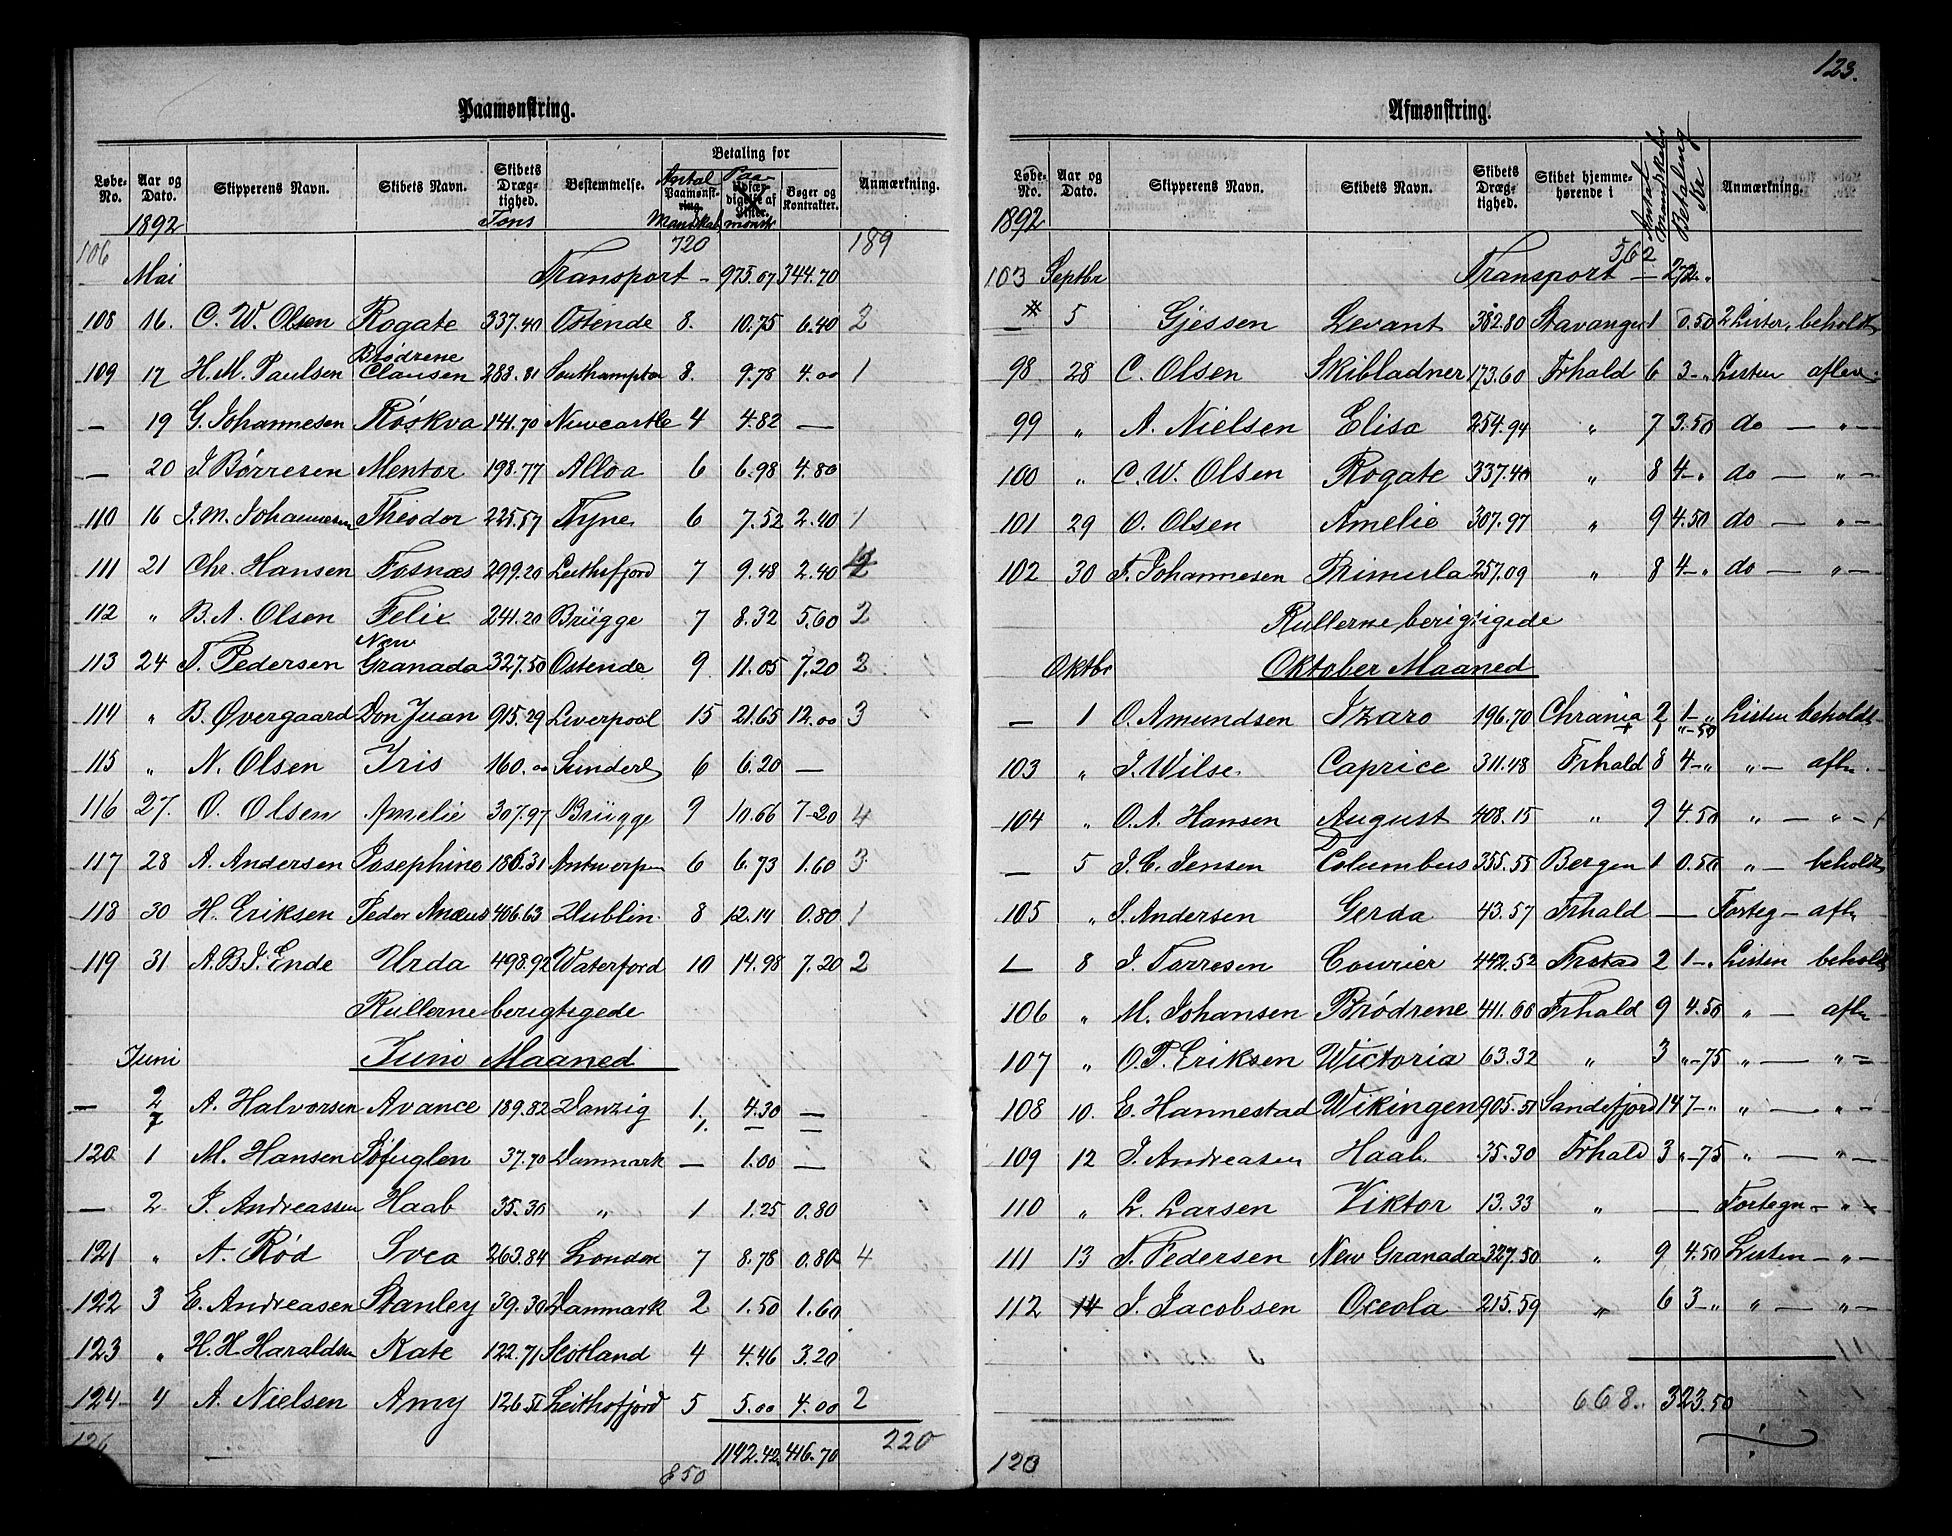 Paamønstring.
Løbe-No. Aar og Dato. Skipperens Navn. Skibets Navn. Skibets Dræg-tighed. Bestemmelse. Betaling for Antal Paamønst-ring. Mandskab Paa-mønstr Bøger og Kontrakter. Anmærkning.
1892 Tons
106 720 189
Mai Transport - 975.07 344.70
108 16. C. W. Olsen Rogate 337.40 Ostende 8. 10.75 6.40 2
109 17 H. M. Paulsen Brødrene Clausen 288.81 Southampton 8. 9.78 4.00 1
— 19 G. Johannesen Røskva 141.70 Newcastle 4 4.82 —
— 20 J Børresen Mentor 198.77 Alloa 6 6.98 4.80
110 16 J. M. Johannesen Theodor 225.57 Tyne 6 7.52 2.40 1
111 21 Chr. Hansen Fosnæs 299.20 Leithsfjord 7 9.48 2.40
112 " B. A. Olsen Felix 241.20 Brügge 7 8.32 5.60 2
113 24 T. Pedersen New Granada 327.50 Ostende 9 11.05 7.20 2
114 " B. Øvergaard Don Juan 915.29 Liverpool 15 21.65 12.00 3
115 " N. Olsen Iris 160.00 Sunderl 6 6.20 —
116 27. O. Olsen Amelie 307.97 Brügge 9 10.66 7-20 4
117 28 A. Andersen Josephine 186.31 Antwerpen 6 6.73 1.60 3
118 30 H. Eriksen Peder Anæus 406.63 Dublin 8 12.14 0.80 1
119 31 A. B. J. Ende Urda 498.92 Waterford 10 14.98 7.20 2
Rullerne berigtigede
Juni Juni Maaned
— 2 7 A. Halvorsen Avance 189.82 Danzig 1. 1. 4.30 —
120 1 M. Hansen Søfuglen 37.70 Danmark — 1.00 —
— 2 J. Andreassen Haab 35.30 " 1 1.25 0.80
121 " A. Rød Svea 263.84 London 7 8.78 0.80 4
122 3 E. Andreasen Stanley 39.30 Danmark 2 1.50 1.60
123 " H. H. Haraldsen Kate 122.71 Scotland 4 4.46 3.20
124 4 A. Nielsen Amy 126.51 Leithsfjord 5 5.00 4.00 2
126 850 1142.42 416.70 220
123.
Afmønstring.
Løbe-No. Aar og Dato. Skipperens Navn. Skibets Navn. Skibets Dræg-tighed. Skibet hjemme-hørende i Antal Mandskaber Betaling Kr Anmærkning.
1892
103 Septbr Transport 562 — 272 "
— 5 Gjessen Levant 382.80 Stavanger 1 0.50 2 Lister beholdt
98 28 C. Olsen Skibladner 173.60 Frhald 6 3-" Listen aflev.
99 " A. Nielsen Elisa 254.94 " 7 3.50 do — " —
100 " C. W. Olsen Rogate 337.40 " 8 4-" do — " —
101 29 O. Olsen Amelie 307.97 " 9 4.50 do — " —
102 30 F. Johannesen Primula 257.09 " 8 4-" do — " —
Rullerne berigtigede
Oktbr Oktober Maaned
— 1 O. Amundsen Izaro 196.70 Chrania 2 1 1-" "-50 Listen beholdt
103 " J. Wilse. Caprice 311.48 Frhald 8 4-" "— afl.
104 " O. A. Hansen August 408.15 " 9 4.50 " — " —
— 5 J. C. Jensen D Columbus 355.55 Bergen 1 0.50 " — beholdt
105 " S. Andersen Gerda 43.57 Frhald — Forteg — afl
— 8 J. Torresen Courier 442.52 Frstad 2 1-" Listen beholdt
106 " M. Johansen Brødrene 411.00 Frhald 9 4.50 " — afl
107 " O. T. Eriksen Wictoria 63.32 " 3 "-75 " — " —
108 10. E. Hannestad Wikingen 905.51 Sandefjord 14 7-" " — " —
109 12 J. Andreasen Haab 35.30 Frhald 3 "-75 " — " —
110 " L. Larsen Viktor 13.33 " — Fortegn — " —
111 13 T. Pedersen New Granada 327.50 " 9 4.50 Listen — " —
112 14 J. Jacobsen Oceola 215.59 " 6 3-" " — " —
668. 323.50
123